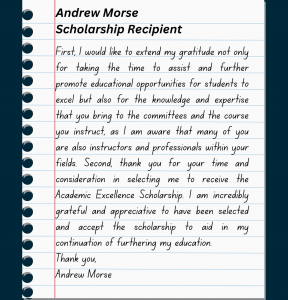 Andrew Morse
Scholarship Recipient
First, I would like to extend my gratitude not only
for taking the time to assist and further
promote educational opportunities for students to
excel but also for the knowledge and expertise
that you bring to the committees and the course
you instruct, as I am aware that many of you
are also instructors and professionals within your
fields. Second, thank you for your time and
consideration in selecting me to receive the
Academic Excellence Scholarship. I am incredibly
grateful and appreciative to have been selected
and accept the scholarship to aid in my
continuation of furthering my education.
Thank you,
Andrew Morse